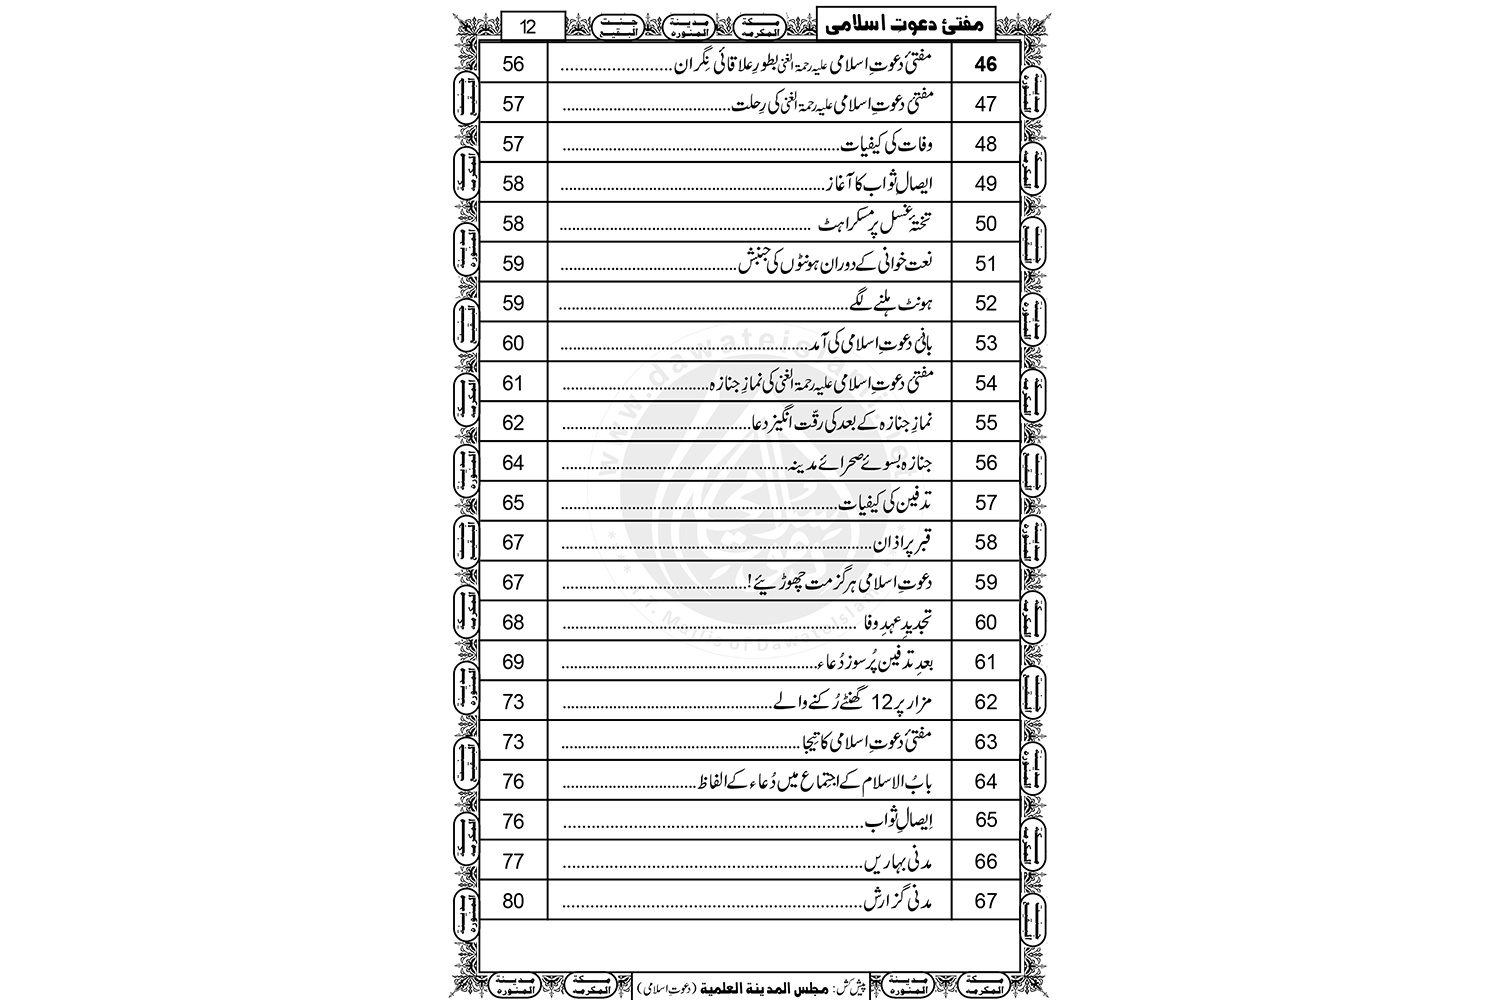 مفتیٔ دعوت اسلامی
12
مکۃ المکرمہ
مدینۃ المنورہ
جنت البقیع
46 مفتیٔ دعوتِ اسلامی علیہ رحمۃ الغنی بطورِ علاقائی نِگران ........................ 56
47 مفتیٔ دعوتِ اسلامی علیہ رحمۃ الغنی کی رِحلت ........................ 57
48 وفات کی کیفیات ........................ 57
49 ایصالِ ثواب کا آغاز ........................ 58
50 تختۂ غسل پر مسکراہٹ ........................ 58
51 نعت خوانی کے دوران ہونٹوں کی جنبش ........................ 59
52 ہونٹ ہلنے لگے ........................ 59
53 بانیٔ دعوتِ اسلامی کی آمد ........................ 60
54 مفتیٔ دعوتِ اسلامی علیہ رحمۃ الغنی کی نمازِ جنازہ ........................ 61
55 نمازِ جنازہ کے بعد کی رقّت انگیز دعا ........................ 62
56 جنازہ بسوئے صحرائے مدینہ ........................ 64
57 تدفین کی کیفیات ........................ 65
58 قبر پر اذان ........................ 67
59 دعوتِ اسلامی ہرگز مت چھوڑیئے! ........................ 67
60 تجدیدِ عہدِ وفا ........................ 68
61 بعدِ تدفین پُرسوز دُعاء ........................ 69
62 مزار پر 12 گھنٹے رُکنے والے ........................ 73
63 مفتیٔ دعوتِ اسلامی کا تِیجا ........................ 73
64 بابُ الاسلام کے اجتِماع میں دُعاء کے الفاظ ........................ 76
65 اِیصالِ ثواب ........................ 76
66 مدنی بہاریں ........................ 77
67 مدنی گزارش ........................ 80
پیش کش: مجلس المدینۃ العلمیۃ (دعوتِ اسلامی)